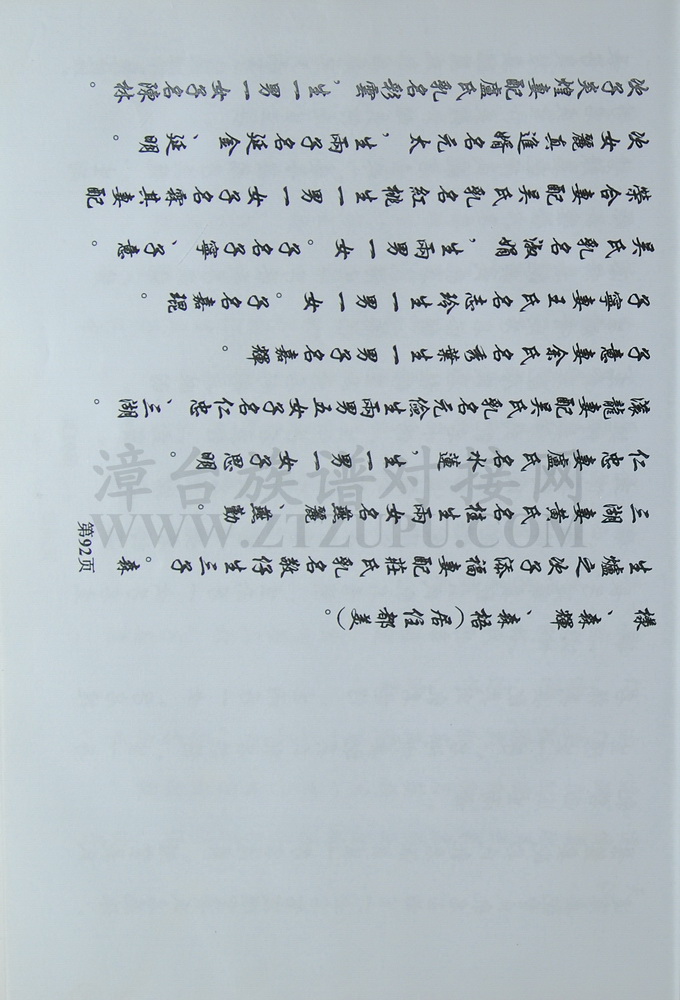 次子炎煌妻配盧氏乳名彩雲，生一男一女子名陳林。
次女麗真進婿名元太，生兩子子名延金、延明。
榮合妻配吳氏乳名紅桃生一男一女子名霖其妻配
吳氏乳名淑娟，生兩男一女。子名子寧、子意。
子寧妻王氏名志玲生一男一女。子名嘉琨。
子意妻余氏名秀葉生一男子名嘉輝。
溪龍妻配吳氏乳名元儉生兩男五女子名仁忠、三湖。
仁忠妻盧氏名水蓮，生一男一女子思明。
三湖妻黃氏名桂生兩女名燕麗、燕勤。
生爐之次子添福妻配莊氏乳名敖仔生三子。森
樣、森輝、森梧(居住都美)。
第92页
漳台族谱对接网
WWW.ZTZUPU.COM